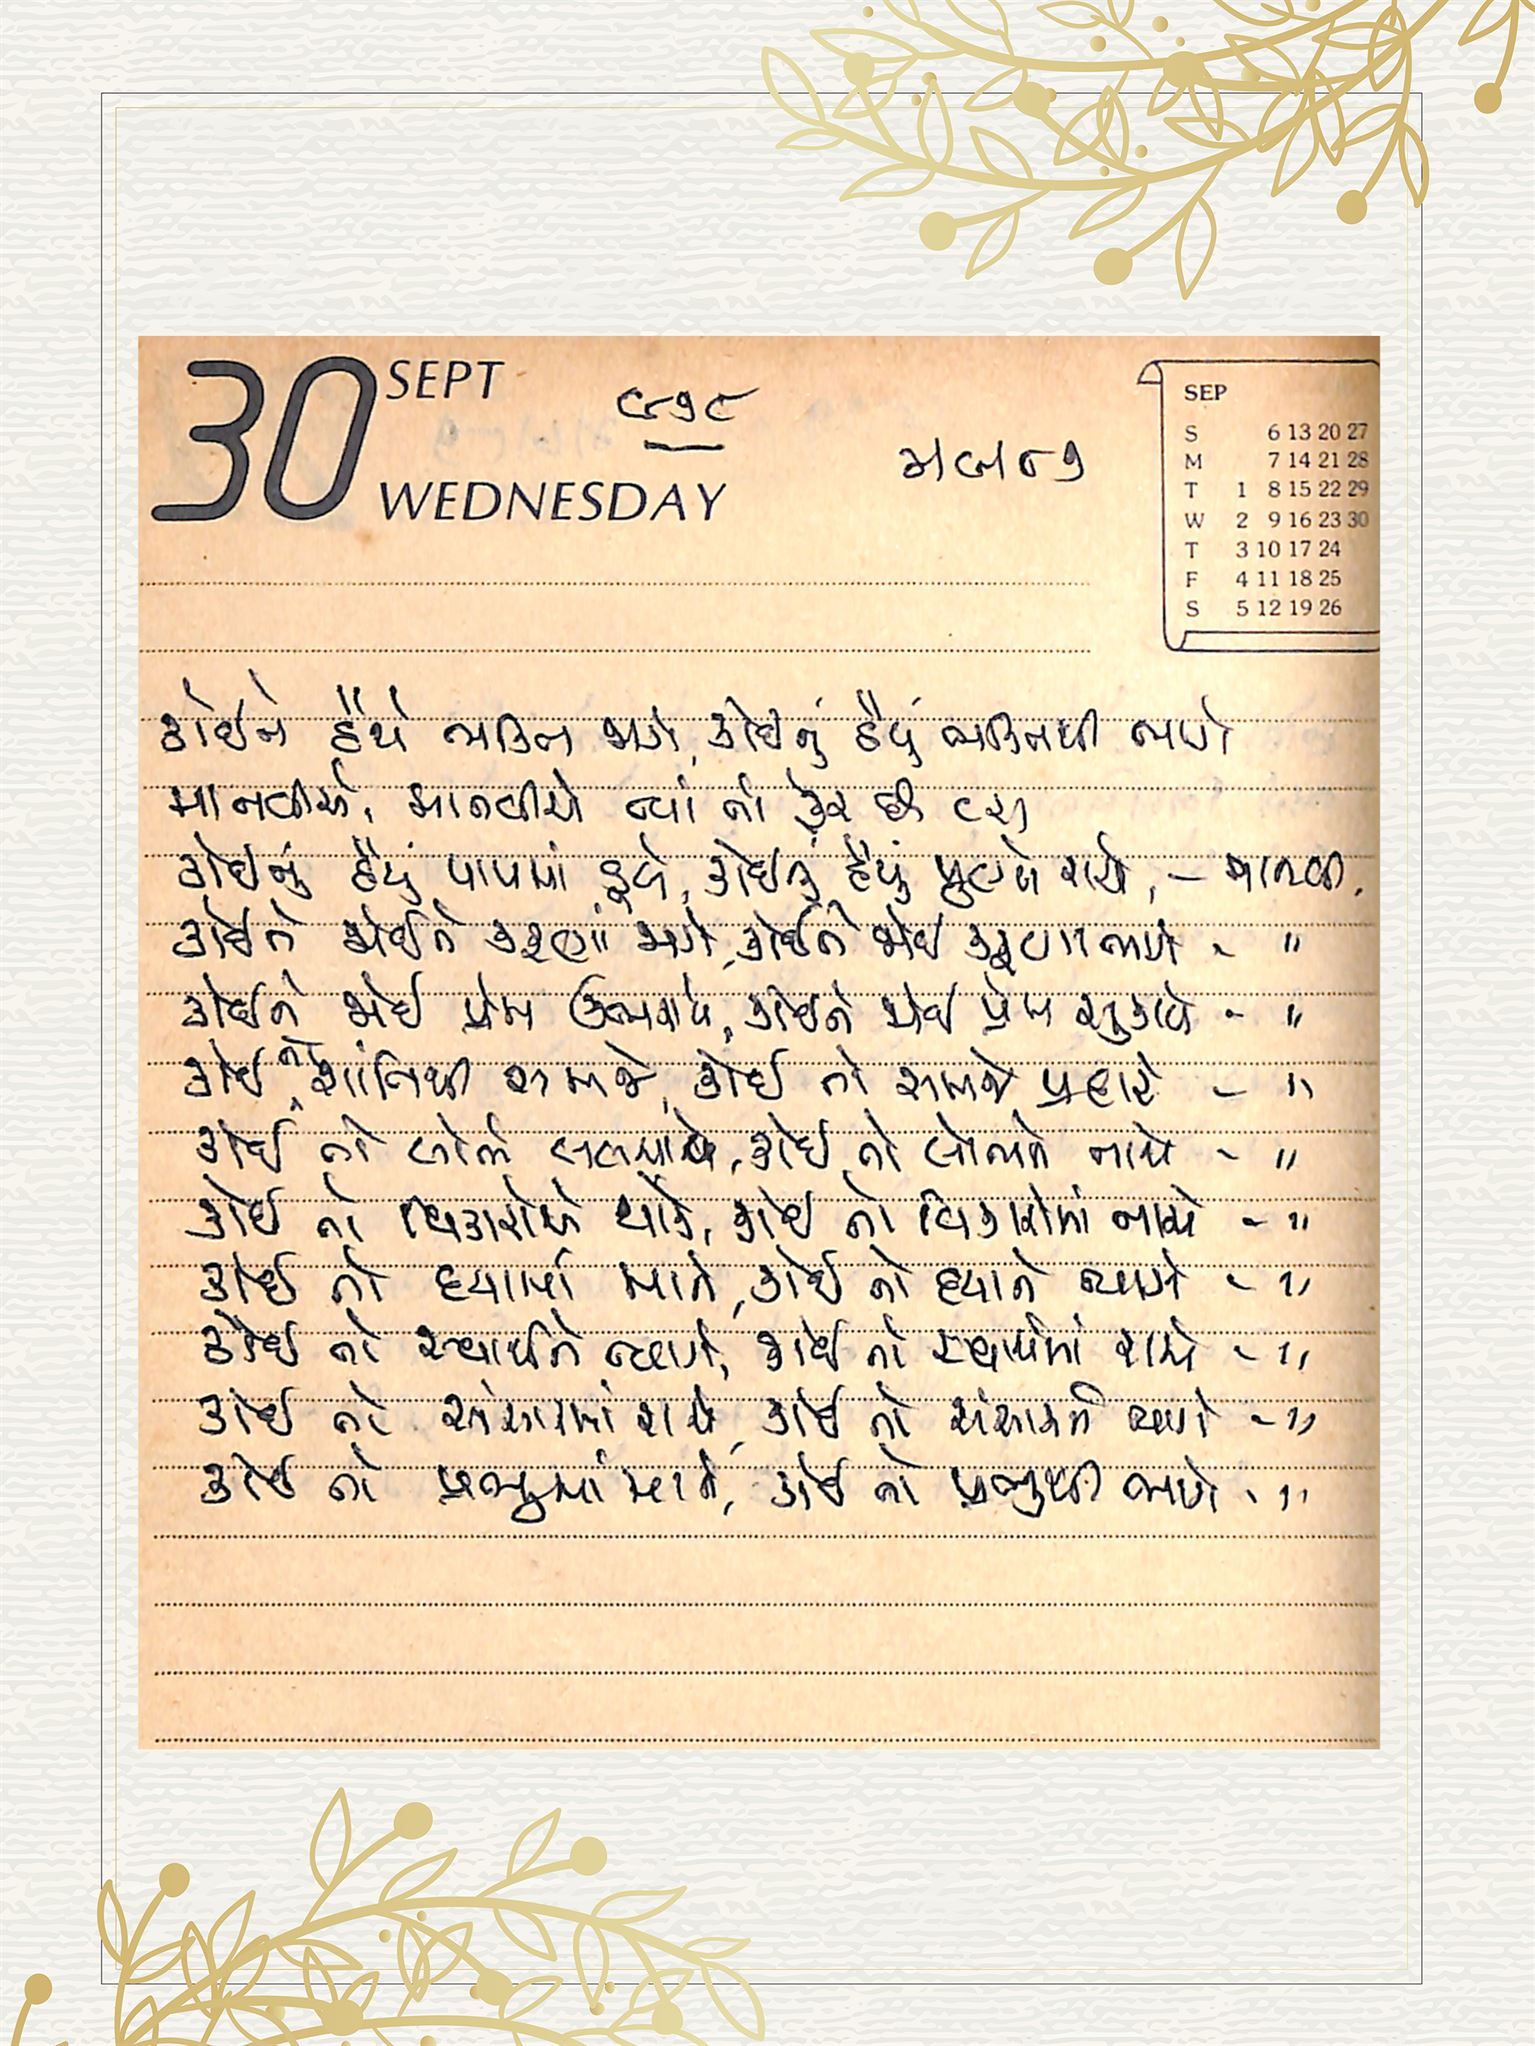 30 SEPT
WEDNESDAY
૯૧૮
ભજન
SEP
S 6 13 20 27
M 7 14 21 28
T 1 8 15 22 29
W 2 9 16 23 30
T 3 10 17 24
F 4 11 18 25
S 5 12 19 26
કોઈને હૈયે ભક્તિ જાગે, કોઈનું હૈયું ભક્તિથી ભાગે
માનવીએ, માનવીએ ત્યાં તો ફેર છે
કોઈનું હૈયું પાપમાં ડૂબે, કોઈનું હૈયું પુણ્યે રાચે, - માનવી.
કોઈને જોઈને કરૂણા જાગે, કોઈને જોઈ કરૂણા ભાગે - "
કોઈને જોઈ પ્રેમ ઉભરાયે, કોઈને જોઈ પ્રેમ સુકાયે - "
કોઈ તો શાંતિથી સમજે, કોઈ તો સમજે પ્રહારે - "
કોઈ તો લોભે લલચાયે, કોઈ તો લોભને નાથે - "
કોઈ તો વિકારોએ થાકે, કોઈ તો વિકારોમાં નાચે - "
કોઈ તો દયામાં માને, કોઈ તો દયાને ત્યાગે - "
કોઈ તો સ્વાર્થને ત્યાગે, કોઈ તો સ્વાર્થમાં રાચે - "
કોઈ તો સંસારમાં રાચે, કોઈ તો સંસારને ત્યાગે - "
કોઈ તો પ્રભુમાં માને, કોઈ તો પ્રભુથી ભાગે - "